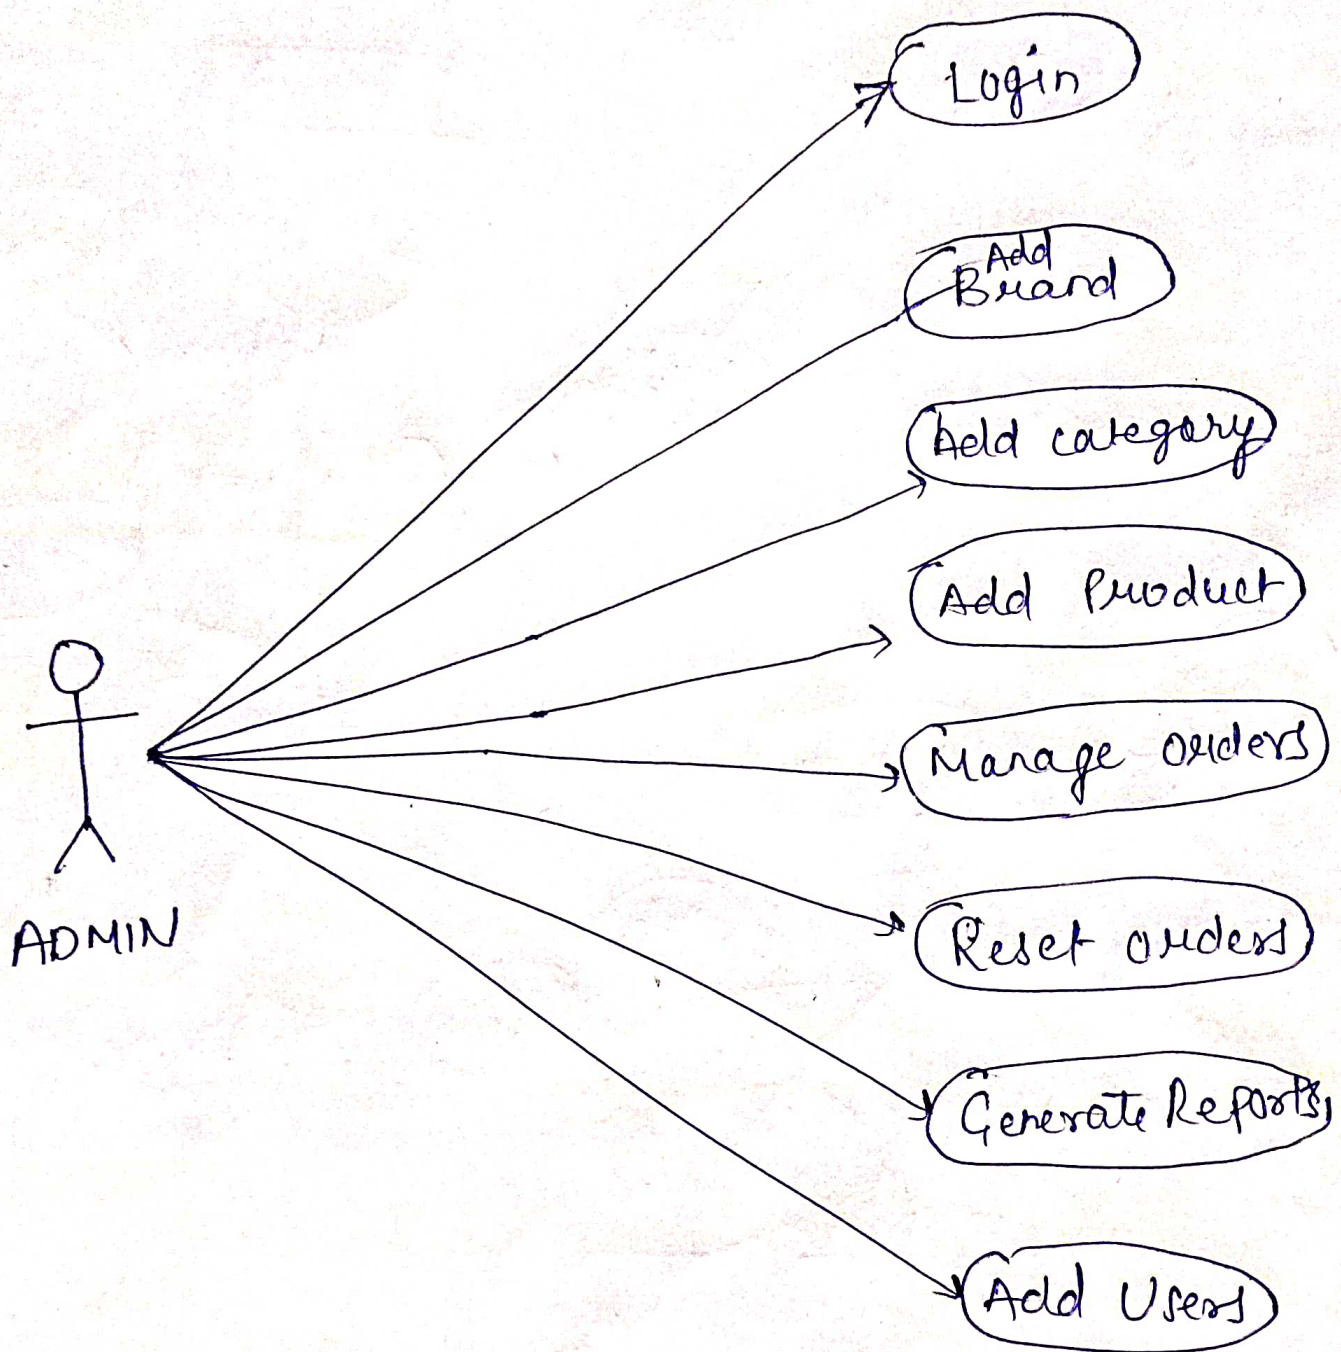 Login
Add
Brand
Add category
Add Product
Manage orders
Reset orders
ADMIN
Generate Reports
Add Users